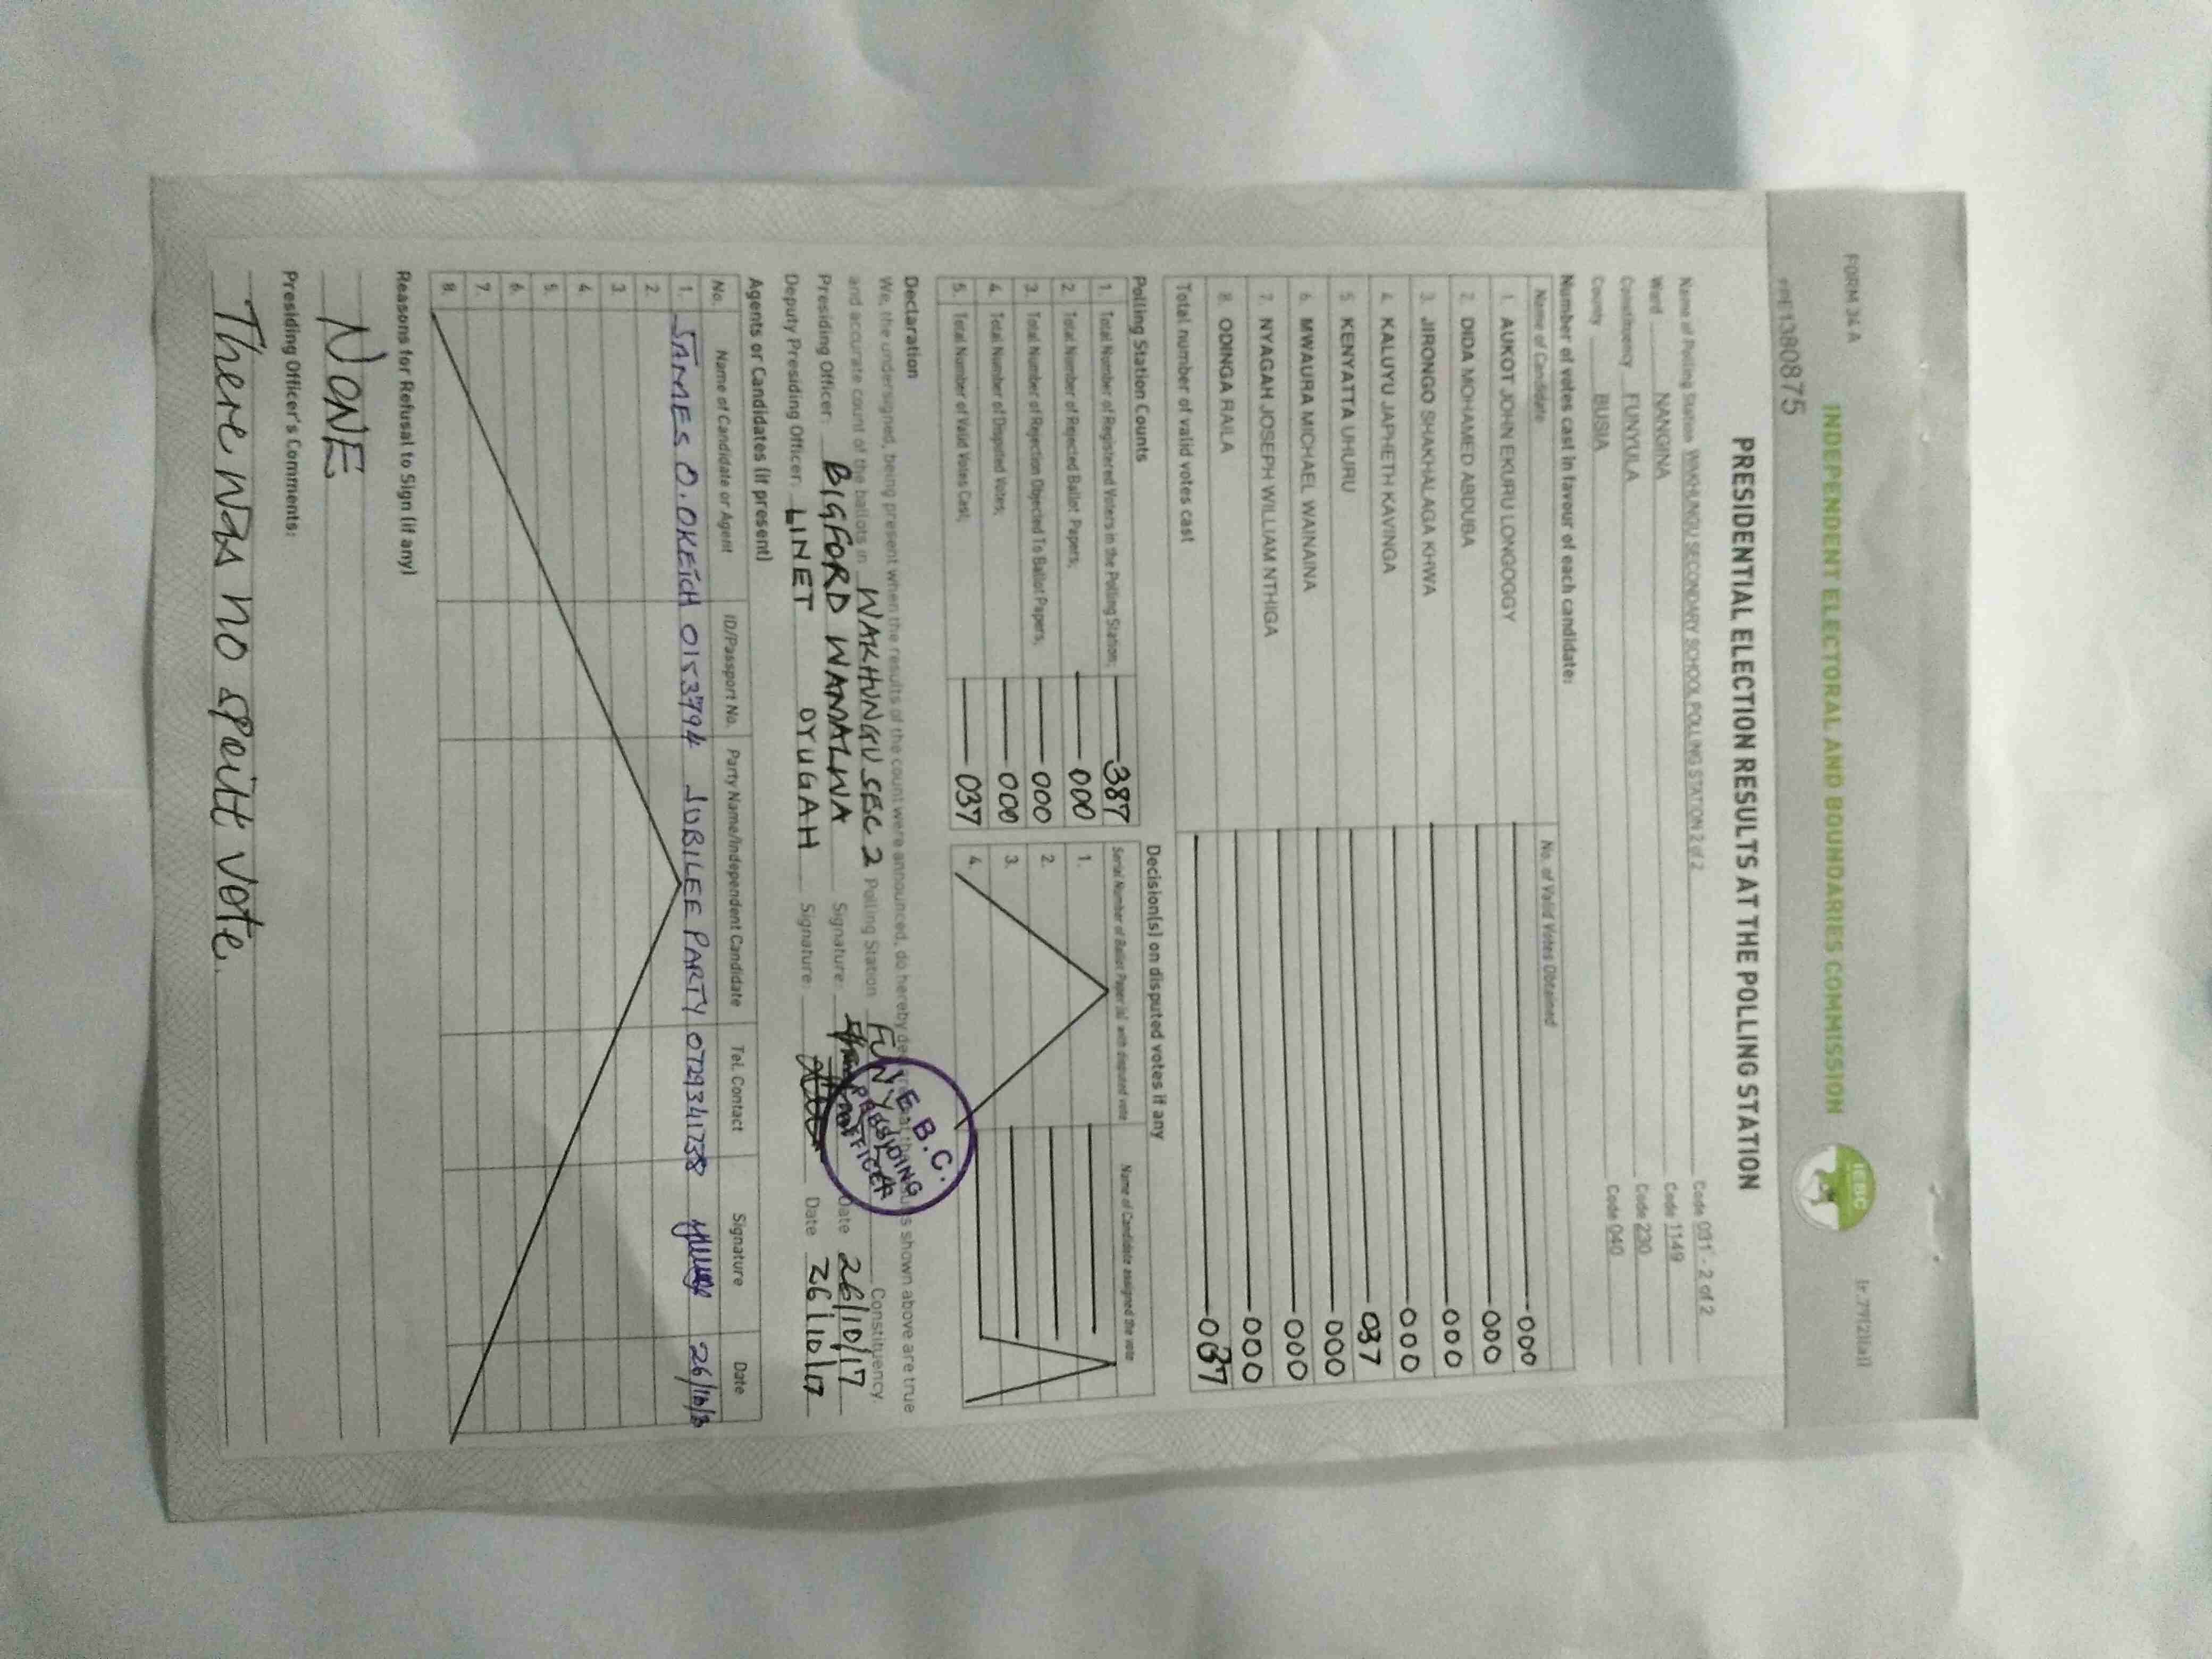 FORM 34A
INDEPENDENT ELECTORAL AND BOUNDARIES COMMISSION
IEBC
PRESIDENTIAL ELECTION RESULTS AT THE POLLING STATION
Name of Polling Station WAKHUNGU SECONDARY SCHOOL POLLING STATION 2 of 2 Code 031 - 2 of 2
Ward NANGINA Code 1149
Constituency FUNYULA Code 230
County BUSIA Code 040
Number of votes cast in favour of each candidate:
Name of Candidate No. of Valid Votes Obtained
1. AUKOT JOHN EKURU LONGOGGY 000
2. DIDA MOHAMED ABDUBA 000
3. JIRONGO SHAKHALAGA KHWA 000
4. KALUYU JAPHETH KAVINGA 000
5. KENYATTA UHURU 037
6. MWAURA MICHAEL WAINAINA 000
7. NYAGAH JOSEPH WILLIAM NTHIGA 000
8. ODINGA RAILA 000
Total number of valid votes cast 037
Polling Station Counts
1. Total Number of Registered Voters in the Polling Station; 387
2. Total Number of Rejected Ballot Papers; 000
3. Total Number of Rejection Objected To Ballot Papers; 000
4. Total Number of Disputed Votes; 000
5. Total Number of Valid Votes Cast; 037
Decision(s) on disputed votes if any
Serial Number of Ballot Paper (s) with disputed vote Name of Candidate assigned the vote
1.
2.
3.
4.
Declaration
We, the undersigned, being present when the results of the count were announced, do hereby declare that the results shown above are true
and accurate count of the ballots in WAKHUNGU SEC 2 Polling Station FUNYULA Constituency
Presiding Officer: BIGFORD WAMALWA Signature: Date 26/10/17
Deputy Presiding Officer: LINET OYUGAH Signature: Date 26/10/17
I.E.B.C.
PRESIDING
OFFICER
Agents or Candidates (if present)
No. Name of Candidate or Agent ID/Passport No. Party Name/Independent Candidate Tel. Contact Signature Date
1. JAMES O. OKEICH 0153794 JUBILEE PARTY
2.
3.
4.
5.
6.
7.
8.
Reasons for Refusal to Sign (if any)
NONE
Presiding Officer's Comments:
There was no spoilt vote.